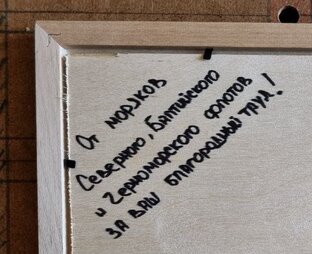 От моряков
Северного, Балтийского
и Черноморского флотов
за ваш благородный труд!